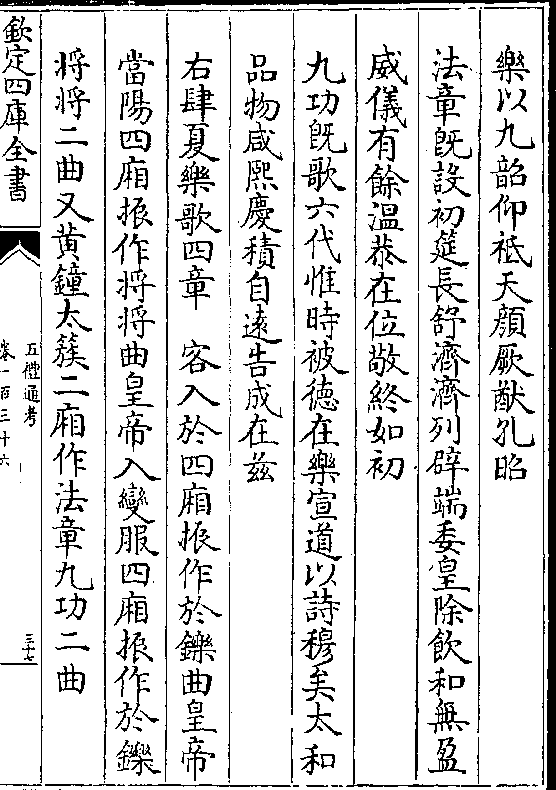 樂以九韶仰祗天顔厥猷孔昭
法章旣設初筵長舒濟濟列辟端委皇除飲和無盈
威儀有餘溫恭在位敬終如初
九功旣歌六代惟時被德在樂宣道以詩穆矣太和
品物咸熙慶積自遠告成在兹
右肆夏樂歌四章 客入於四廂振作於鑠曲皇帝
當陽四廂振作將將曲皇帝入變服四廂振作於鑠
將將二曲又黄鐘太簇二廂作法章九功二曲
欽定四庫全書
五禮通考
卷一百三十六
三十七